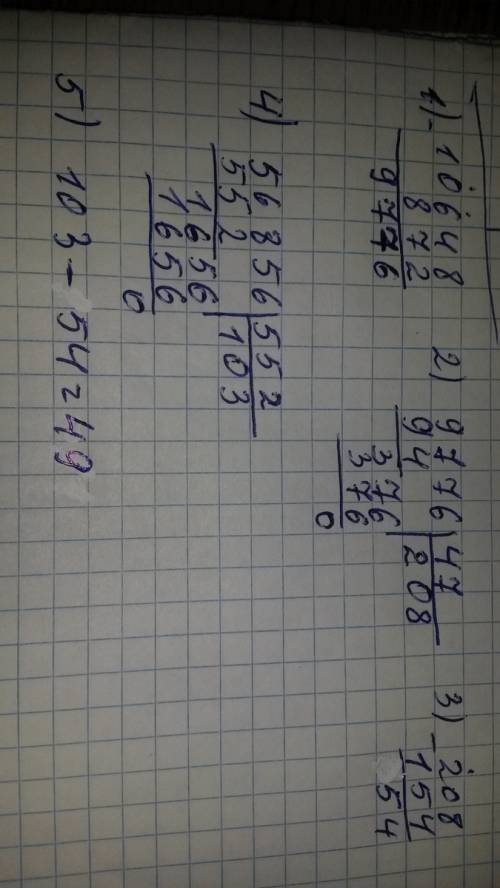 1) - 10648 2) 9776 | 47 3) - 208
872 94 208 154
9776 376 54
376
0
4) 56856 | 552
552 103
1656
1656
0
5) 103 - 54 = 49